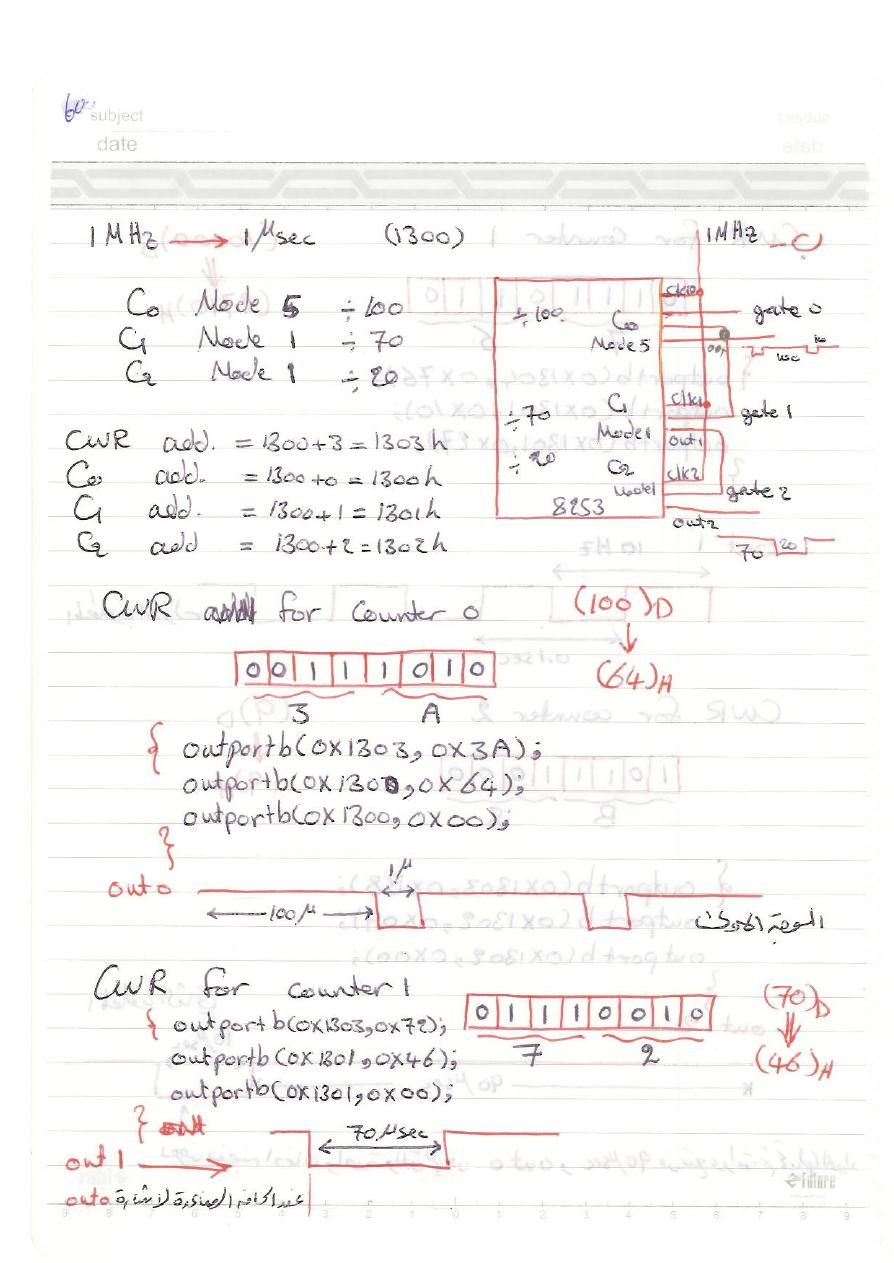 60
subject
date
1 MHz → 1 μsec (1300) 1 MHz ب
C0 Mode 5 ÷ 100
C1 Mode 1 ÷ 70
C2 Mode 1 ÷ 20
÷ 100 C0 clk0 gate 0
Mode 5 out 1μ
÷ 70 C1 clk1 gate 1
Mode 1 out1
÷ 20 C2 clk2
Mode 1 gate 2
8253 out2
70 20
CWR add. = 1300+3 = 1303h
C0 add. = 1300+0 = 1300h
C1 add. = 1300+1 = 1301h
C2 add = 1300+2 = 1302h
CWR for counter 0 (100)D
↓
0 0 1 1 1 0 1 0 (64)H
3 A
{ outportb(0X1303, 0X3A);
outportb(0X1300, 0X64);
outportb(0X1300, 0X00);
}
out0 1μ
100μ الموجة
CWR for counter 1
0 1 1 1 0 0 1 0 (70)D
{ outportb(0X1303, 0X72);
7 2 (46)H
outportb(0X1301, 0X46);
outportb(0X1301, 0X00);
}
70 μsec
out 1 →
out0 عند الحافة الصاعدة لإشارة
Future